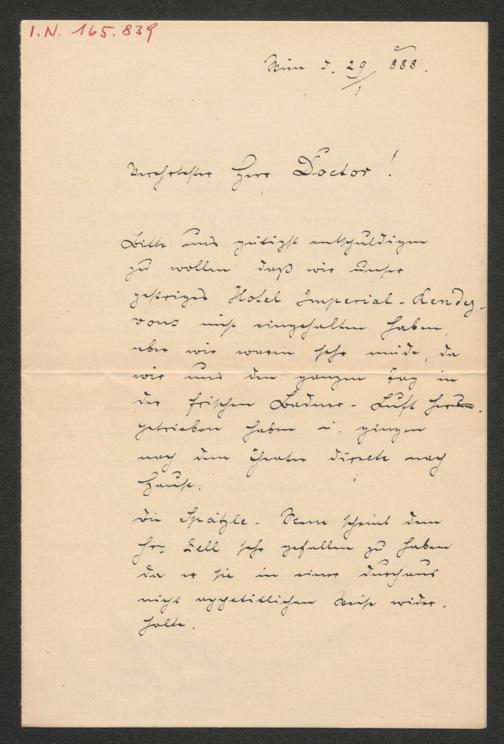 I.N. 165.839
Wien d. 29/1 888.
Verehrtester Herr Doctor!
Bitte uns gütigst entschuldigen
zu wollen daß wir unser
gestriges Hotel Imperial-Rendez-
vous nicht eingehalten haben,
aber wir waren sehr müde, da
wir uns den ganzen Tag in
der frischen Badner-Luft herum-
getrieben haben u. gingen
nach dem Theater direkte nach
Hause.
Die Spätzle-Scene scheint dem
Hr. Zell sehr gefallen zu haben
da er sie in einer durchaus
nicht appetitlichen Weise wider-
holte.